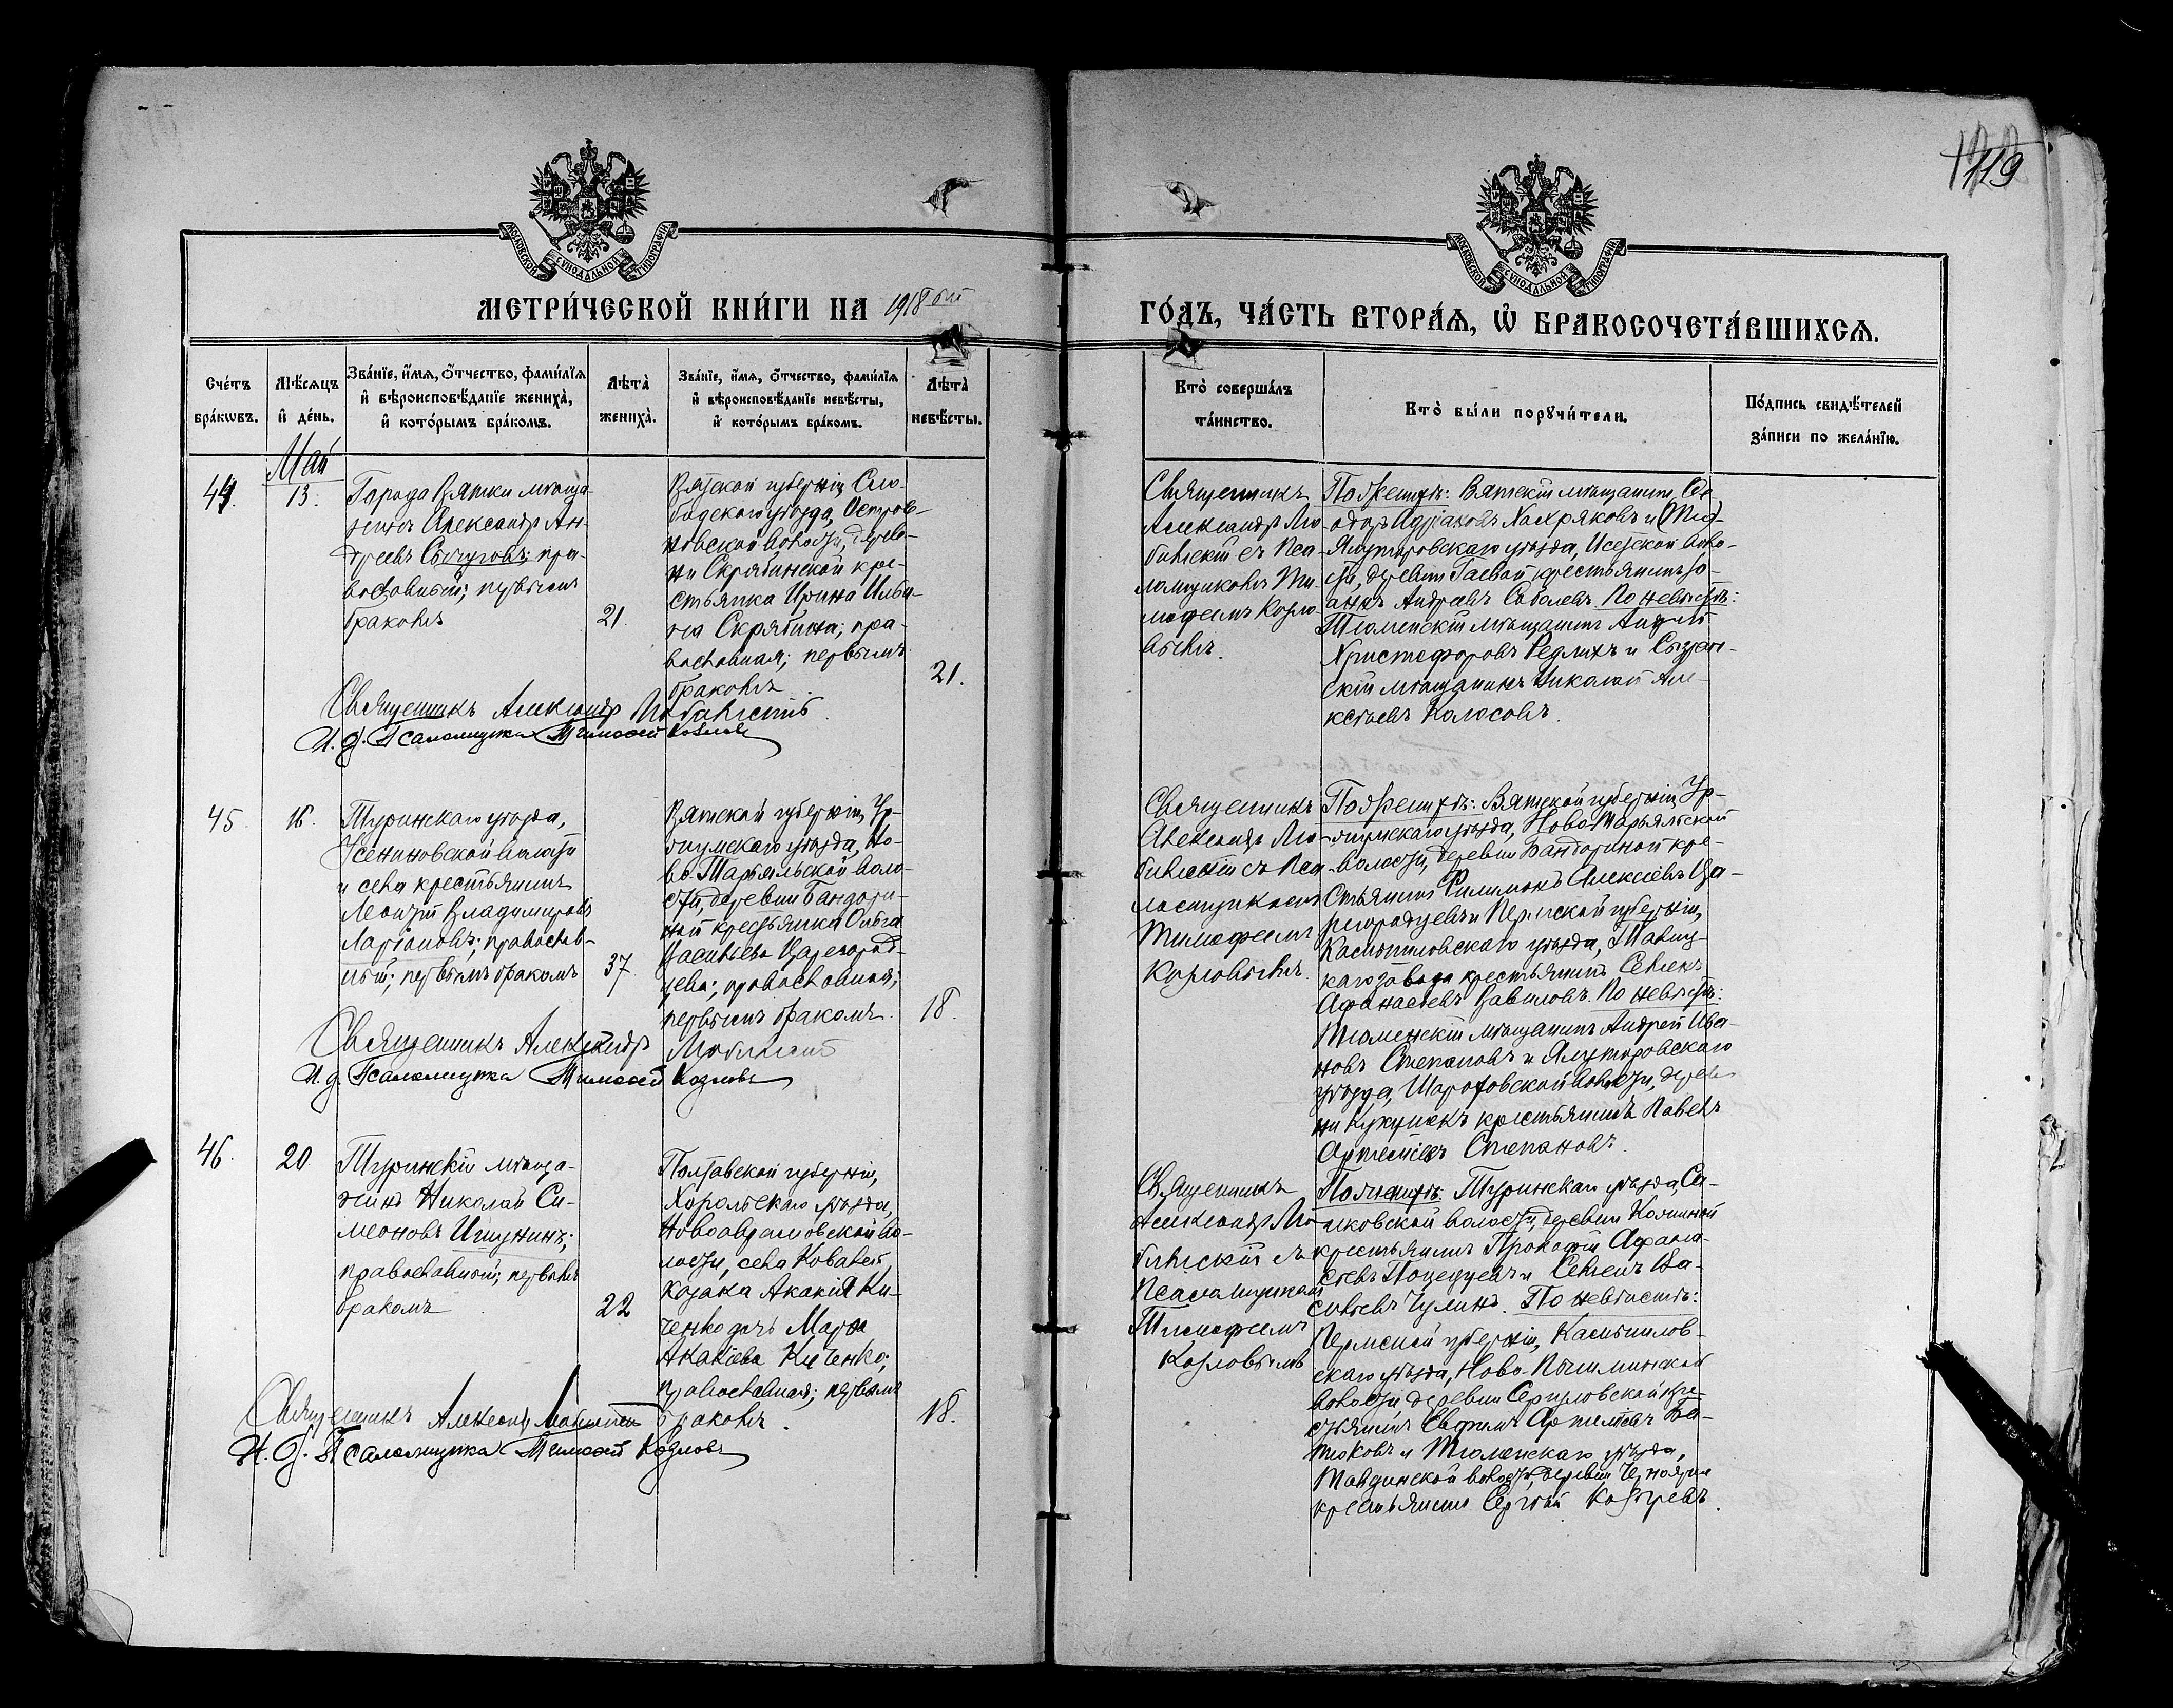 119
МОСКОВСКОЙ СУНОДАЛЬНОЙ ТИПОГРАФІИ
МОСКОВСКОЙ СУНОДАЛЬНОЙ ТИПОГРАФІИ
МЕТРИ́ЧЕСКОЙ КНИ́ГИ НА 1918
ГО́ДЪ, ЧА́СТЬ ВТОРА́Я, Ѡ БРАКОСОЧЕТА́ВШИХСЯ.
Сче́тъ бра́кѡвъ.
Мѣ́сяцъ и де́нь.
Зва́нїе, и́мя, о́тчество, фами́лїя
и вѣроисповѣ́данїе жениха̀,
и кото́рымъ бра́комъ.
Лѣта̀ жениха̀.
Зва́нїе, и́мя, о́тчество, фами́лїя
и вѣроисповѣ́данїе невѣ́сты,
и кото́рымъ бра́комъ.
Лѣта̀ невѣ́сты.
Кто̀ соверша́лъ
та́инство.
Кто̀ бы́ли порꙋчи́тели.
По́дпись свидѣ́телей
за́писи по жела́нїю.
Май
44.
13.
Города Вятки мѣща-
нинъ Александръ Ан-
дреевъ Сычуговъ; пра-
вославный; первымъ
бракомъ
21.
Вятской губерніи, Сло-
бодского уѣзда,
волости, дерев-
ни Скрябинской кре-
стьянка Ирина Ильи-
на Скрябина; пра-
вославная; первымъ
бракомъ.
21.
Священникъ
Александръ Лю-
бинскій съ Пса-
ломщикомъ Ти-
мофеемъ Козло-
вымъ.
По женихѣ: Вятскій мѣщанинъ Ѳе-
одоръ Хохряковъ и
Ялуторовскаго уѣзда, Исетской воло-
сти, деревни Гаевой крестьянинъ Іо-
аннъ Андреевъ Соболевъ. По невѣстѣ:
Тюменскій мѣщанинъ Андрей
Христофоровъ Редлихъ и Сызран-
скій мѣщанинъ Николай Але-
ксѣевъ Колосовъ.
Священникъ Александръ Любинскій.
И. д. Псаломщика Тимофей Козловъ
45.
16.
Туринскаго уѣзда,
Усениновской волости
и села крестьянинъ
Леонтій Владиміровъ
Ларіоновъ; православ-
ный; первымъ бракомъ
37.
Вятской губерніи, Ур-
жумскаго уѣзда, Но-
во-Торъяльской воло-
сти, деревни Бандори-
ной крестьянка Ольга
Васильева Царегород-
цева; православная;
первымъ бракомъ.
18.
Священникъ
Александръ Лю-
бинскій съ Пса-
ломщикомъ
Тимофеемъ
Козловымъ.
По женихѣ: Вятской губерніи, Ур-
жумскаго уѣзда, Ново-Торъяльской
волости, деревни Бандориной кре-
стьянинъ Филимонъ Алексіевъ Ца-
регородцевъ и Пермской губерніи,
Камышловскаго уѣзда, Талиц-
каго завода крестьянинъ Семенъ
Афанасьевъ Вавиловъ. По невѣстѣ:
Тюменскій мѣщанинъ Андрей Ива-
новъ Степановъ и Ялуторовскаго
уѣзда, волости, дерев-
ни крестьянинъ Павелъ
Артеміевъ Степановъ.
Священникъ Александръ Любинскій
И. д. Псаломщика Тимофей Козловъ
46.
20.
Туринскій мѣща-
нинъ Николай Си-
меоновъ Игумнинъ;
православный; первымъ
бракомъ
22
Полтавской губерніи,
Хорольскаго уѣзда,
Новоаврамовской во-
лости, села Ковалей,
козака Акакія Ки-
ченко дочь Марѳа
Акакіева Киченко;
православная; первымъ
бракомъ.
18.
Священникъ
Александръ Лю-
бинскій съ
Псаломщикомъ
Тимофеемъ
Козловымъ
По женихѣ: Туринскаго уѣзда,
волости, деревни
крестьянинъ Прокопій Афана-
сьевъ и Семенъ Ва-
сильевъ Чулинъ. По невѣстѣ:
Пермской губерніи, Камышлов-
скаго уѣзда, Ново-Пышминской
волости деревни кре-
стьянинъ Евфимъ Артеміевъ Ба-
наковъ и Тюменскаго уѣзда,
Тавдинской волости, деревни
крестьянинъ Сергѣй Костревъ.
Священникъ Александръ Любинскій
И. д. Псаломщика Тимофей Козловъ